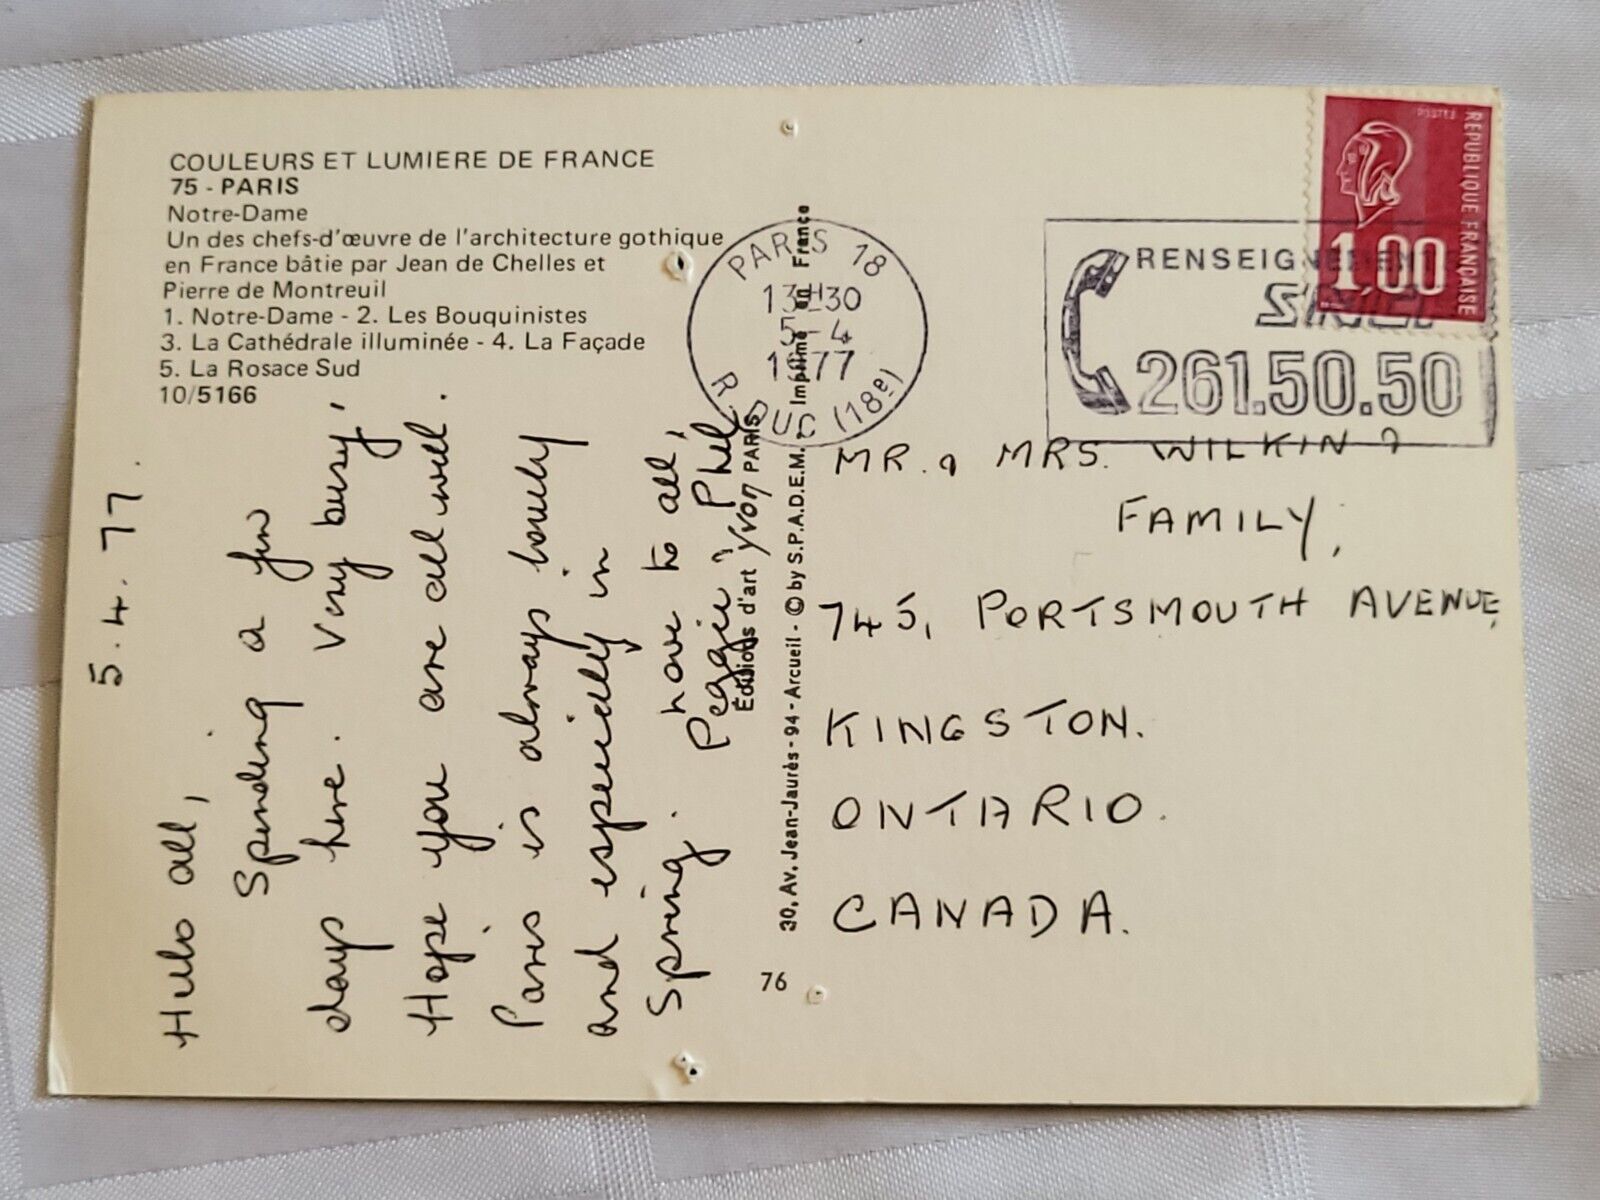 COULEURS ET LUMIERE DE FRANCE
75 - PARIS
Notre-Dame
Un des chefs-d'œuvre de l'architecture gothique
en France bâtie par Jean de Chelles et
Pierre de Montreuil
1. Notre-Dame - 2. Les Bouquinistes
3. La Cathédrale illuminée - 4. La Façade
5. La Rosace Sud
10/5166
5.4.77.
Hullo all,
Spending a few
days here. Very busy,
Hope you are all well.
Paris is always lovely
and especially in
Spring. Love to all,
Peggie & Phil.
Éditions d'art yvon PARIS
30, Av. Jean-Jaurès - 94 - Arcueil - © by S.P.A.D.E.M. Imprimé en France
76
PARIS 18
13H30
5-4
1977
R. DUC (18e)
RENSEIGNEMENTS
SNCF
261.50.50
POSTES
REPUBLIQUE FRANÇAISE
1,00
MR. & MRS. WILKIN &
FAMILY,
745, PORTSMOUTH AVENUE,
KINGSTON.
ONTARIO.
CANADA.